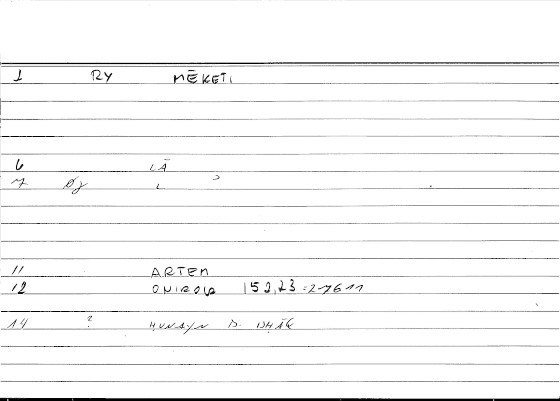 1 RY MĒKETI
6 LĀ
7
11 ARTEM
12 ONIROLO 152,23:27611
14 ? HUNAYN B. ISHĀQ